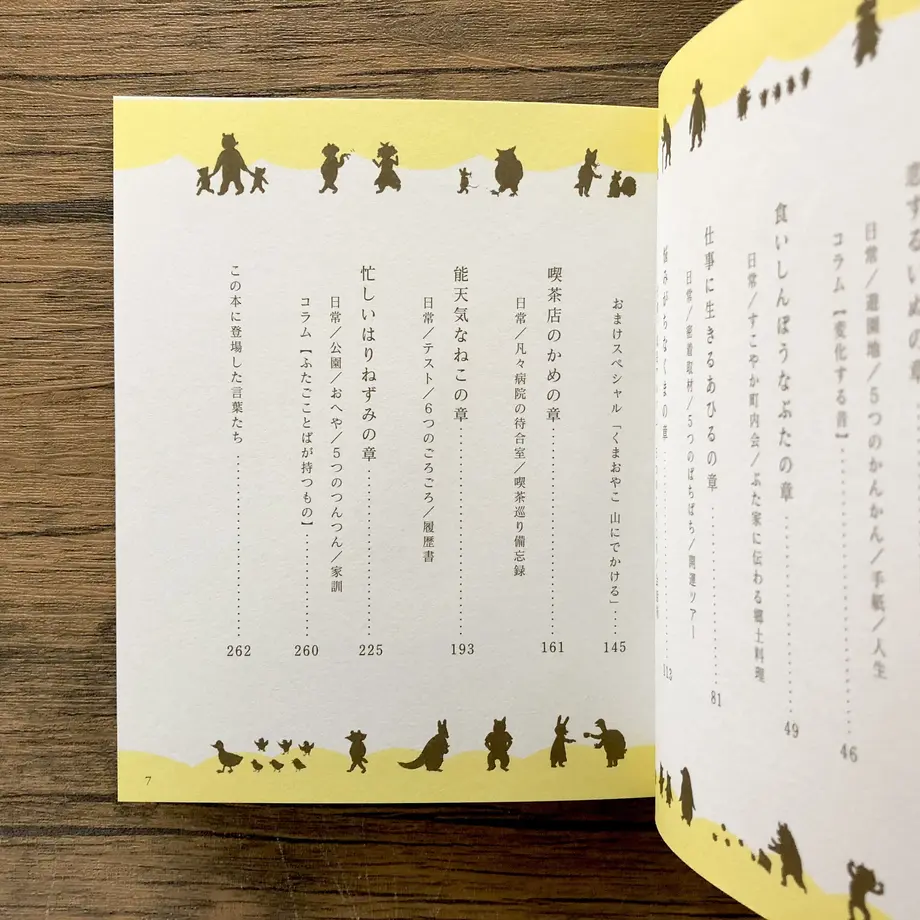 恋するいぬの章
日常／遊園地／5つのかんかん／手紙／人生
コラム【変化する音】 46
食いしんぼうなぶたの章 49
日常／すこやか町内会／ぶた家に伝わる郷土料理
仕事に生きるあひるの章 81
日常／密着取材／5つのぱちぱち／開運ツアー
悩みがちなくまの章 113
おまけスペシャル「くまおやこ 山にでかける」 145
喫茶店のかめの章 161
日常／凡々病院の待合室／喫茶巡り備忘録
能天気なねこの章 193
日常／テスト／6つのごろごろ／履歴書
忙しいはりねずみの章 225
日常／公園／おへや／5つのつんつん／家訓
コラム【ふたごことばが持つもの】 260
この本に登場した言葉たち 262
7